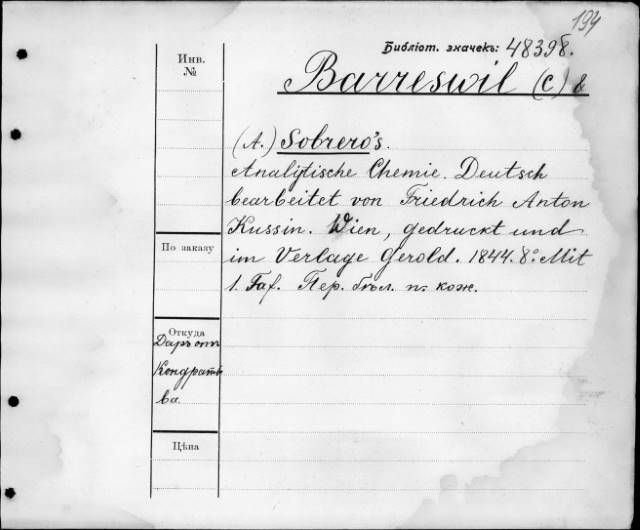 194
Библіот. значекъ: 48398.
Инв.
№
Barreswil (C) &
(A.) Sobrero's.
Analytische Chemie. Deutsch
bearbeitet von Friedrich Anton
Kussin. Wien, gedruckt und
im Verlage Gerold. 1844. 8º. Mit
1. Taf. Пер. бѣл. п. кож.
По заказу
Откуда
Даръ отъ
Кондратье
ва
Цѣна